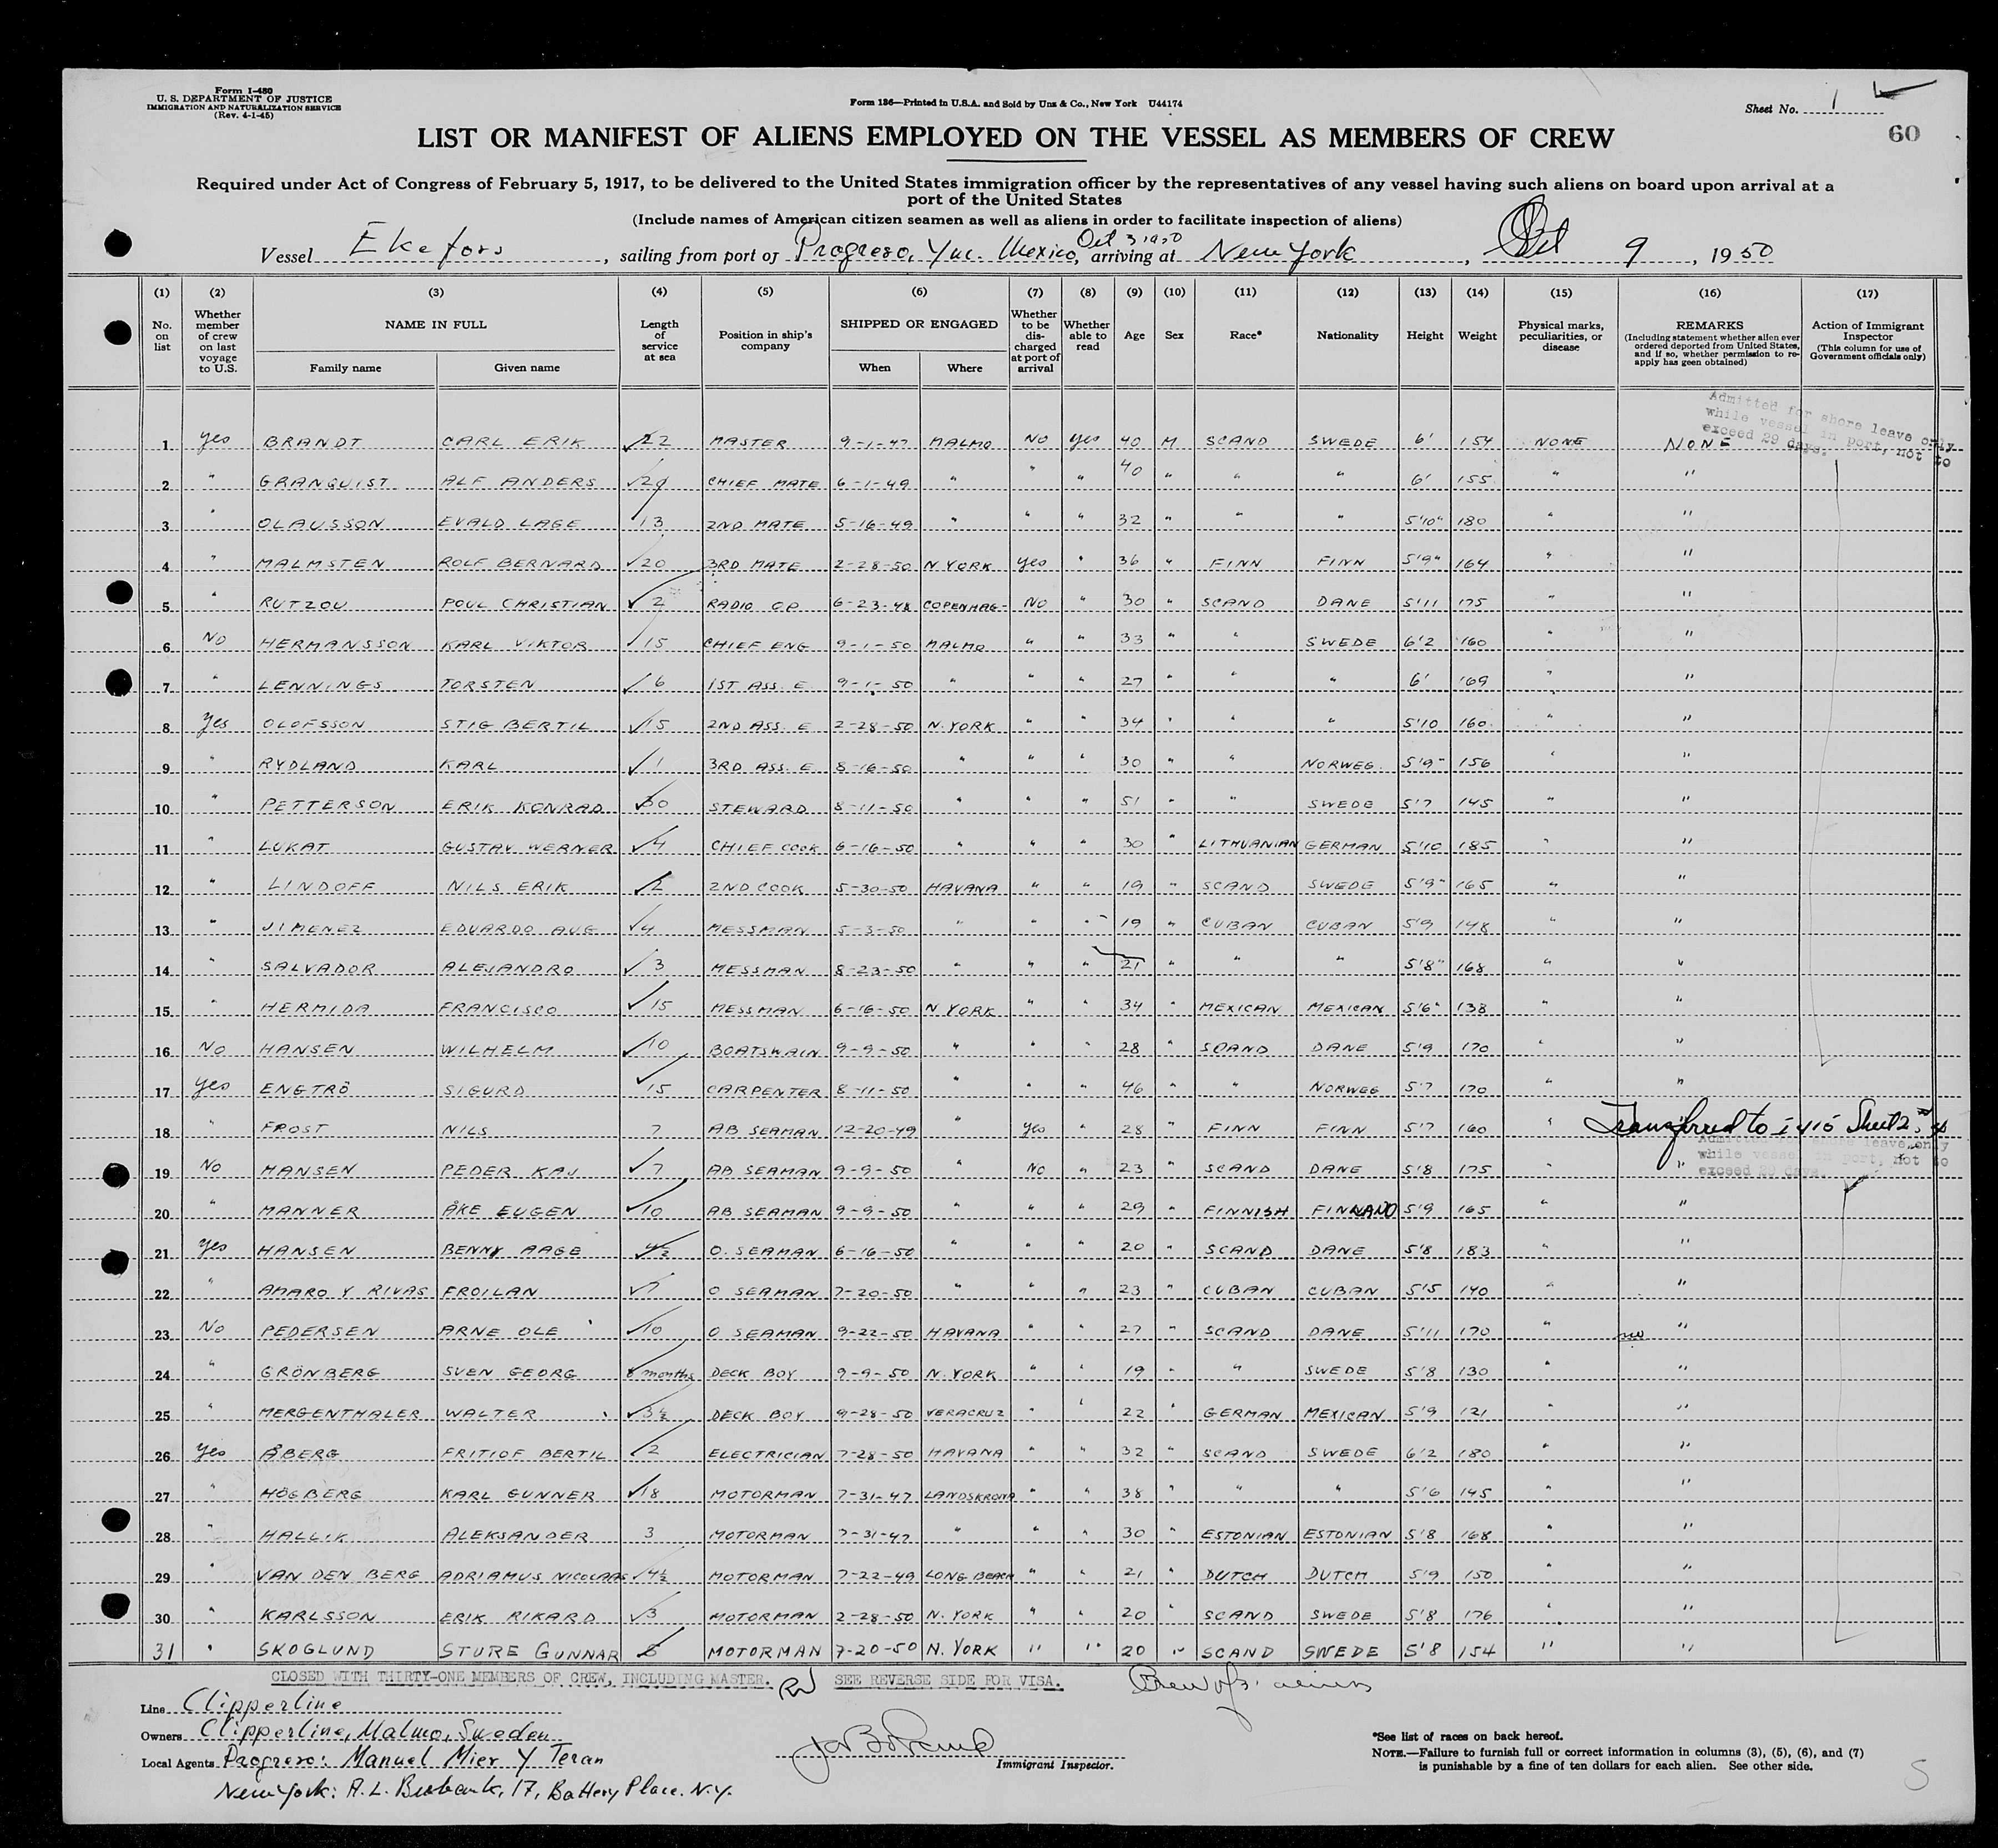 Form I-480
U. S. DEPARTMENT OF JUSTICE
IMMIGRATION AND NATURALIZATION SERVICE
(Rev. 4-1-45)
Form 136—Printed in U.S.A. and Sold by Unz & Co., New York U44174
Sheet No. 1
60
LIST OR MANIFEST OF ALIENS EMPLOYED ON THE VESSEL AS MEMBERS OF CREW
Required under Act of Congress of February 5, 1917, to be delivered to the United States immigration officer by the representatives of any vessel having such aliens on board upon arrival at a
port of the United States
(Include names of American citizen seamen as well as aliens in order to facilitate inspection of aliens)
Vessel Ekefors, sailing from port of Progreso, Yuc. Mexico, Oct 3 1950 arriving at New York, Oct 9, 1950
(1) (2) (3) (4) (5) (6) (7) (8) (9) (10) (11) (12) (13) (14) (15) (16) (17)
No. on list Whether member of crew on last voyage to U.S. NAME IN FULL Family name Given name Length of service at sea Position in ship's company SHIPPED OR ENGAGED When Where Whether to be discharged at port of arrival Whether able to read Age Sex Race* Nationality Height Weight Physical marks, peculiarities, or disease REMARKS (Including statement whether alien ever ordered deported from United States, and if so, whether permission to re-apply has geen obtained) Action of Immigrant Inspector (This column for use of Government officials only)
Admitted for shore leave only while vessel in port, not to exceed 29 days.
1 yes BRANDT CARL ERIK 22 MASTER 9-1-47 MALMO NO yes 40 M SCAND SWEDE 6' 154 NONE NONE
2 " GRANQUIST ALF ANDERS 20 CHIEF MATE 6-1-49 " " " 40 " " " 6' 155 " "
3 " OLAUSSON EVALD LAGE 13 2ND MATE 5-16-49 " " " 32 " " " 5'10" 180 " "
4 " MALMSTEN ROLF BERNARD 20 3RD MATE 2-28-50 N YORK yes " 36 " FINN FINN 5'9" 164 " "
5 " RUTZOU POUL CHRISTIAN 2 RADIO OP 6-23-48 COPENHAG- NO " 30 " SCAND DANE 5'11 175 " "
6 NO HERMANSSON KARL VIKTOR 15 CHIEF ENG 9-1-50 MALMO " " 33 " " SWEDE 6'2 160 " "
7 " LENNINGS TORSTEN 6 1ST ASS. E 9-1-50 " " " 27 " " " 6' 169 " "
8 yes OLOFSSON STIG BERTIL 15 2ND ASS. E 2-28-50 N. YORK " " 34 " " " 5'10 160 " "
9 " RYDLAND KARL 1 3RD ASS. E 8-16-50 " " " 30 " " NORWEG. 5'9" 156 " "
10 " PETTERSON ERIK KONRAD 30 STEWARD 8-11-50 " " " 51 " " SWEDE 5'7 145 " "
11 " LUKAT GUSTAV WERNER 4 CHIEF COOK 6-16-50 " " " 30 " LITHUANIAN GERMAN 5'10 185 " "
12 " LINDOFF NILS ERIK 2 2ND COOK 5-30-50 HAVANA " " 19 " SCAND SWEDE 5'9" 165 " "
13 " JIMENEZ EDUARDO AUG 4 MESSMAN 5-3-50 " " " 19 " CUBAN CUBAN 5'9 148 " "
14 " SALVADOR ALEJANDRO 3 MESSMAN 8-23-50 " " " 21 " " " 5'8" 168 " "
15 " HERMIDA FRANCISCO 15 MESSMAN 6-16-50 N YORK " " 34 " MEXICAN MEXICAN 5'6" 138 " "
16 NO HANSEN WILHELM 10 BOATSWAIN 9-9-50 " " " 28 " SCAND DANE 5'9 170 " "
17 yes ENGTRÖ SIGURD 15 CARPENTER 8-11-50 " " " 46 " " NORWEG 5'7 170 " "
18 " FROST NILS 7 AB SEAMAN 12-20-49 " yes " 28 " FINN FINN 5'7 160 " Transferred to I 415 Sheet 2
Admitted for shore leave only while vessel in port, not to exceed 29 days.
19 NO HANSEN PEDER KAJ 7 AB SEAMAN 9-9-50 " NO " 23 " SCAND DANE 5'8 175 " "
20 " MANNER ÅKE EUGEN 10 AB SEAMAN 9-9-50 " " " 29 " FINNISH FINNLAND 5'9 165 " "
21 yes HANSEN BENNY AAGE 4½ O. SEAMAN 6-16-50 " " " 20 " SCAND DANE 5'8 183 " "
22 " AMARO Y RIVAS FROILAN 7 O SEAMAN 7-20-50 " " " 23 " CUBAN CUBAN 5'5 140 " "
23 NO PEDERSEN ARNE OLE 10 O SEAMAN 9-22-50 HAVANA " " 27 " SCAND DANE 5'11 170 " no "
24 " GRÖNBERG SVEN GEORG 8 months DECK BOY 9-9-50 N. YORK " " 19 " " SWEDE 5'8 130 " "
25 " MERGENTHALER WALTER 3½ DECK BOY 9-28-50 VERACRUZ " " 22 " GERMAN MEXICAN 5'9 121 " "
26 yes ÅBERG FRITIOF BERTIL 2 ELECTRICIAN 7-28-50 HAVANA " " 32 " SCAND SWEDE 6'2 180 " "
27 " HÖGBERG KARL GUNNER 18 MOTORMAN 7-31-47 LANDSKRONA " " 38 " " " 5'6 145 " "
28 " HALLIK ALEKSANDER 3 MOTORMAN 7-31-47 " " " 30 " ESTONIAN ESTONIAN 5'8 168 " "
29 " VAN DEN BERG ADRIAMUS NICOLAAS 4½ MOTORMAN 7-22-49 LONG BEACH " " 21 " DUTCH DUTCH 5'9 150 " "
30 " KARLSSON ERIK RIKARD 3 MOTORMAN 2-28-50 N. YORK " " 20 " SCAND SWEDE 5'8 176 " "
31 " SKOGLUND STURE GUNNAR 6 MOTORMAN 7-20-50 N. YORK " " 20 " SCAND SWEDE 5'8 154 " "
CLOSED WITH THIRTY-ONE MEMBERS OF CREW, INCLUDING MASTER. SEE REVERSE SIDE FOR VISA.
Line Clipperline
Owners Clipperline, Malmo, Sweden
Local Agents Progreso: Manuel Mier Y Teran
New York: A. L. Burbank, 17, Battery Place. N.Y.
Immigrant Inspector.
*See list of races on back hereof.
NOTE.—Failure to furnish full or correct information in columns (3), (5), (6), and (7)
is punishable by a fine of ten dollars for each alien. See other side.